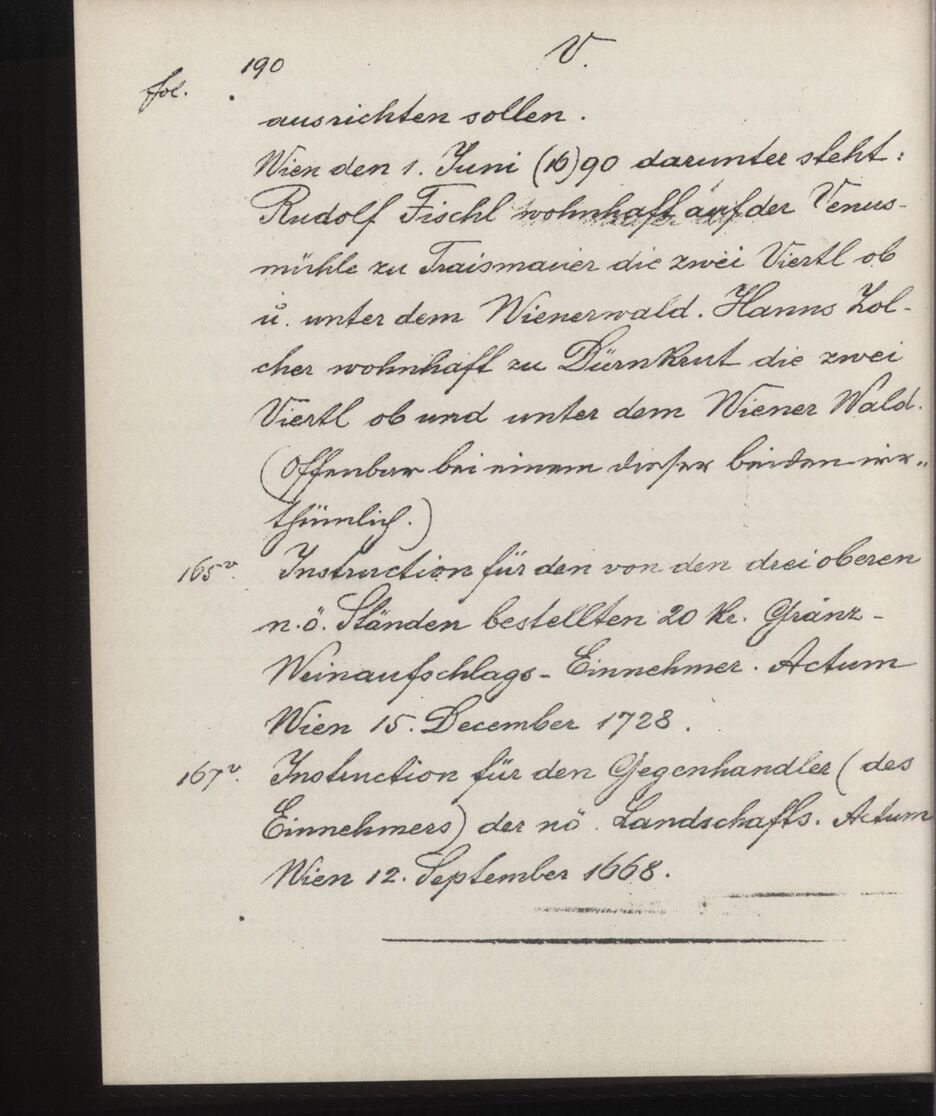 190 V.
fol.
ausrichten sollen.
Wien den 1. Juni (16)90 darunter steht:
Rudolf Fischl wohnhaft auf der Venus-
mühle zu Traismauer die zwei Viertl ob
u. unter dem Wienerwald. Hanns Zol-
cher wohnhaft zu Dürnkrut die zwei
Viertl ob und unter dem Wiener Wald.
(Offenbar bei einem dieser beiden irr-
thümlich.)
165v. Instruction für den von den drei oberen
n.ö. Ständen bestellten 20 kr. Gränz-
Weinaufschlags-Einnehmer. Actum
Wien 15. December 1728.
167v. Instruction für den Gegenhandler (des
Einnehmers) der nö. Landschafts. Actum
Wien 12. September 1668.